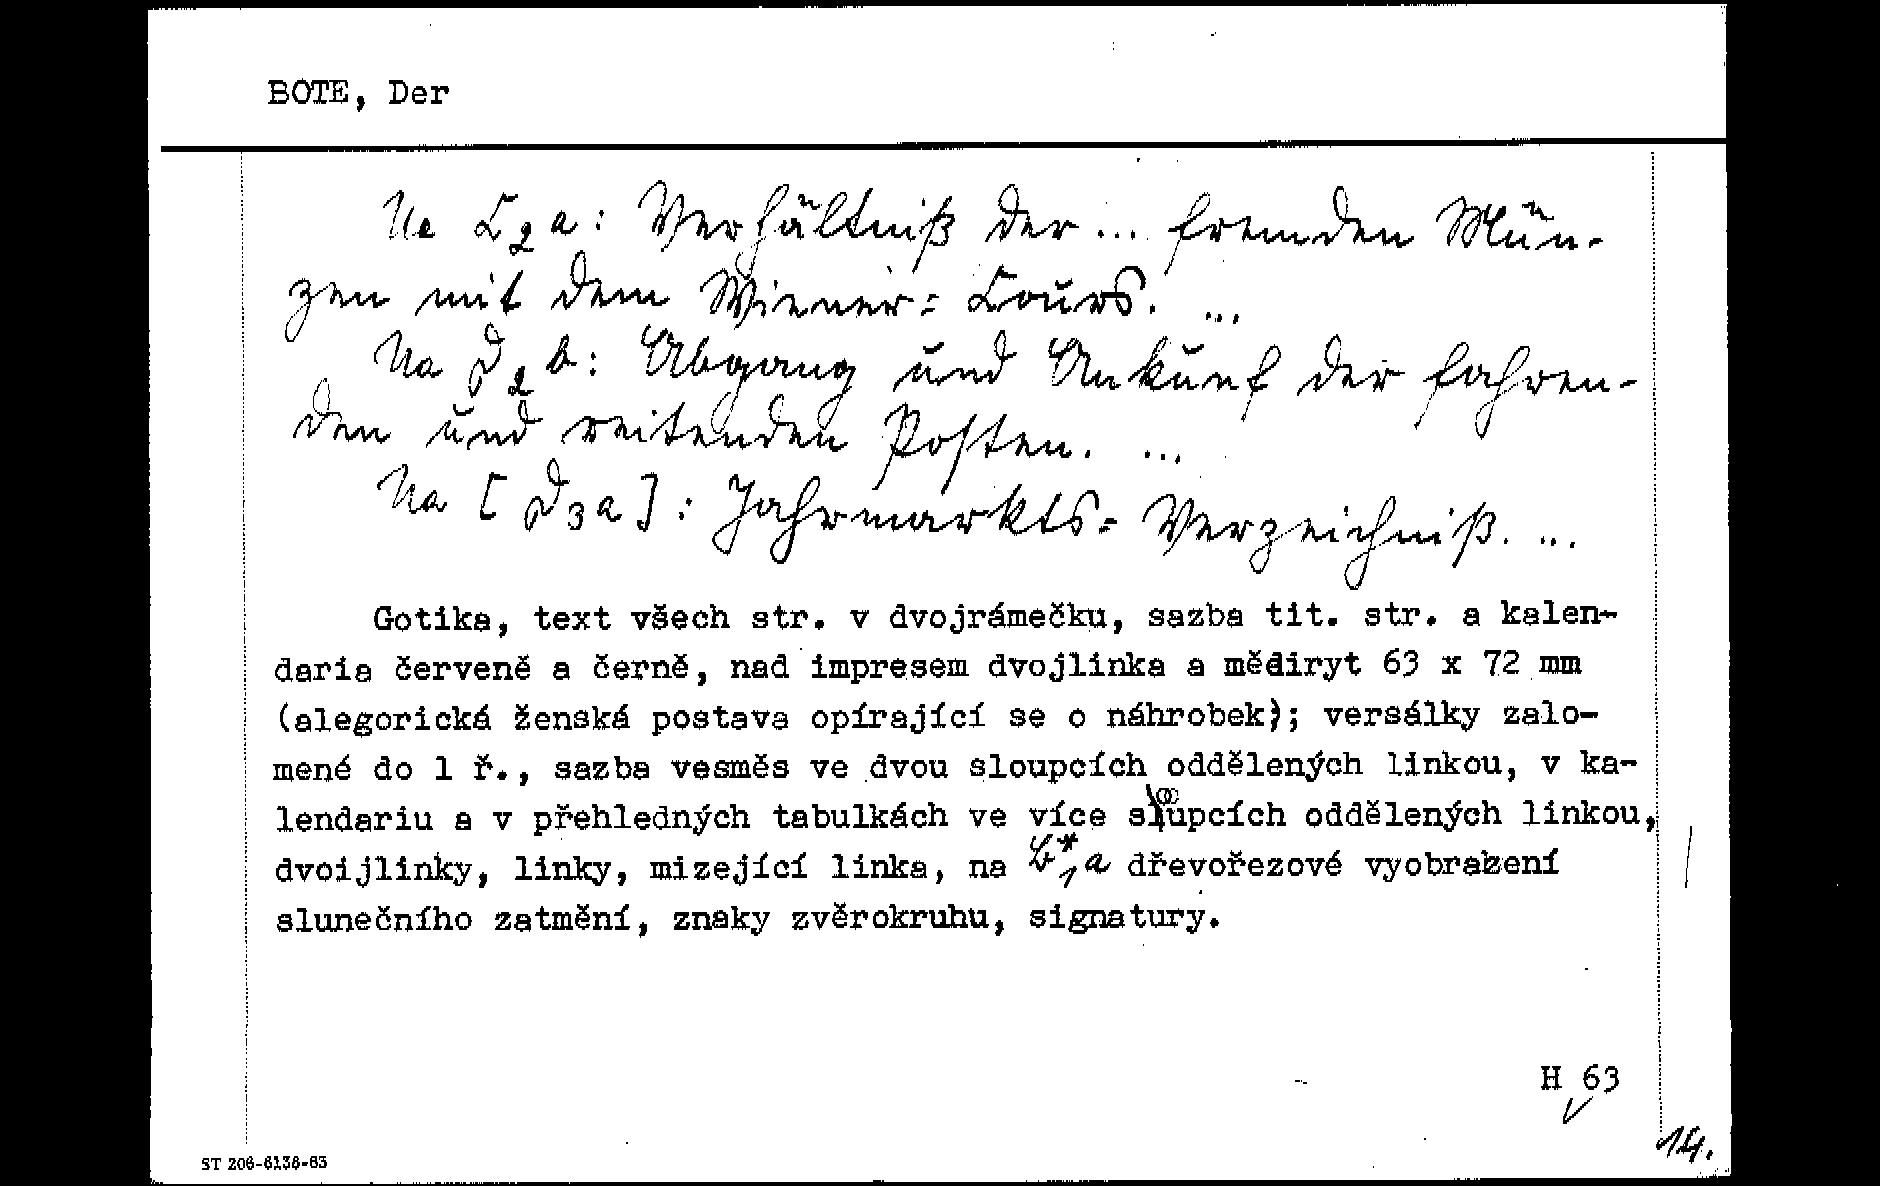 BOTE, Der
Na C2a: Verhältniß der ... fremden Mün-
zen mit dem Wiener= Cours. ...
Na D2b: Abgang und Ankunf der fahren-
den und reitenden Posten. ...
Na [D3a]: Jahrmarkts= Verzeichniß. ...
Gotika, text všech str. v dvojrámečku, sazba tit. str. a kalen-
daria červeně a černě, nad impresem dvojlinka a mědiryt 63 x 72 mm
(alegorická ženská postava opírající se o náhrobek); versálky zalo-
mené do 1 ř., sazba vesměs ve dvou sloupcích oddělených linkou, v ka-
lendariu a v přehledných tabulkách ve více sloupcích oddělených linkou,
dvoijlinky, linky, mizející linka, na b*1a dřevořezové vyobrazení
slunečního zatmění, znaky zvěrokruhu, signatury.
H 63
14.
ST 206-6136-63